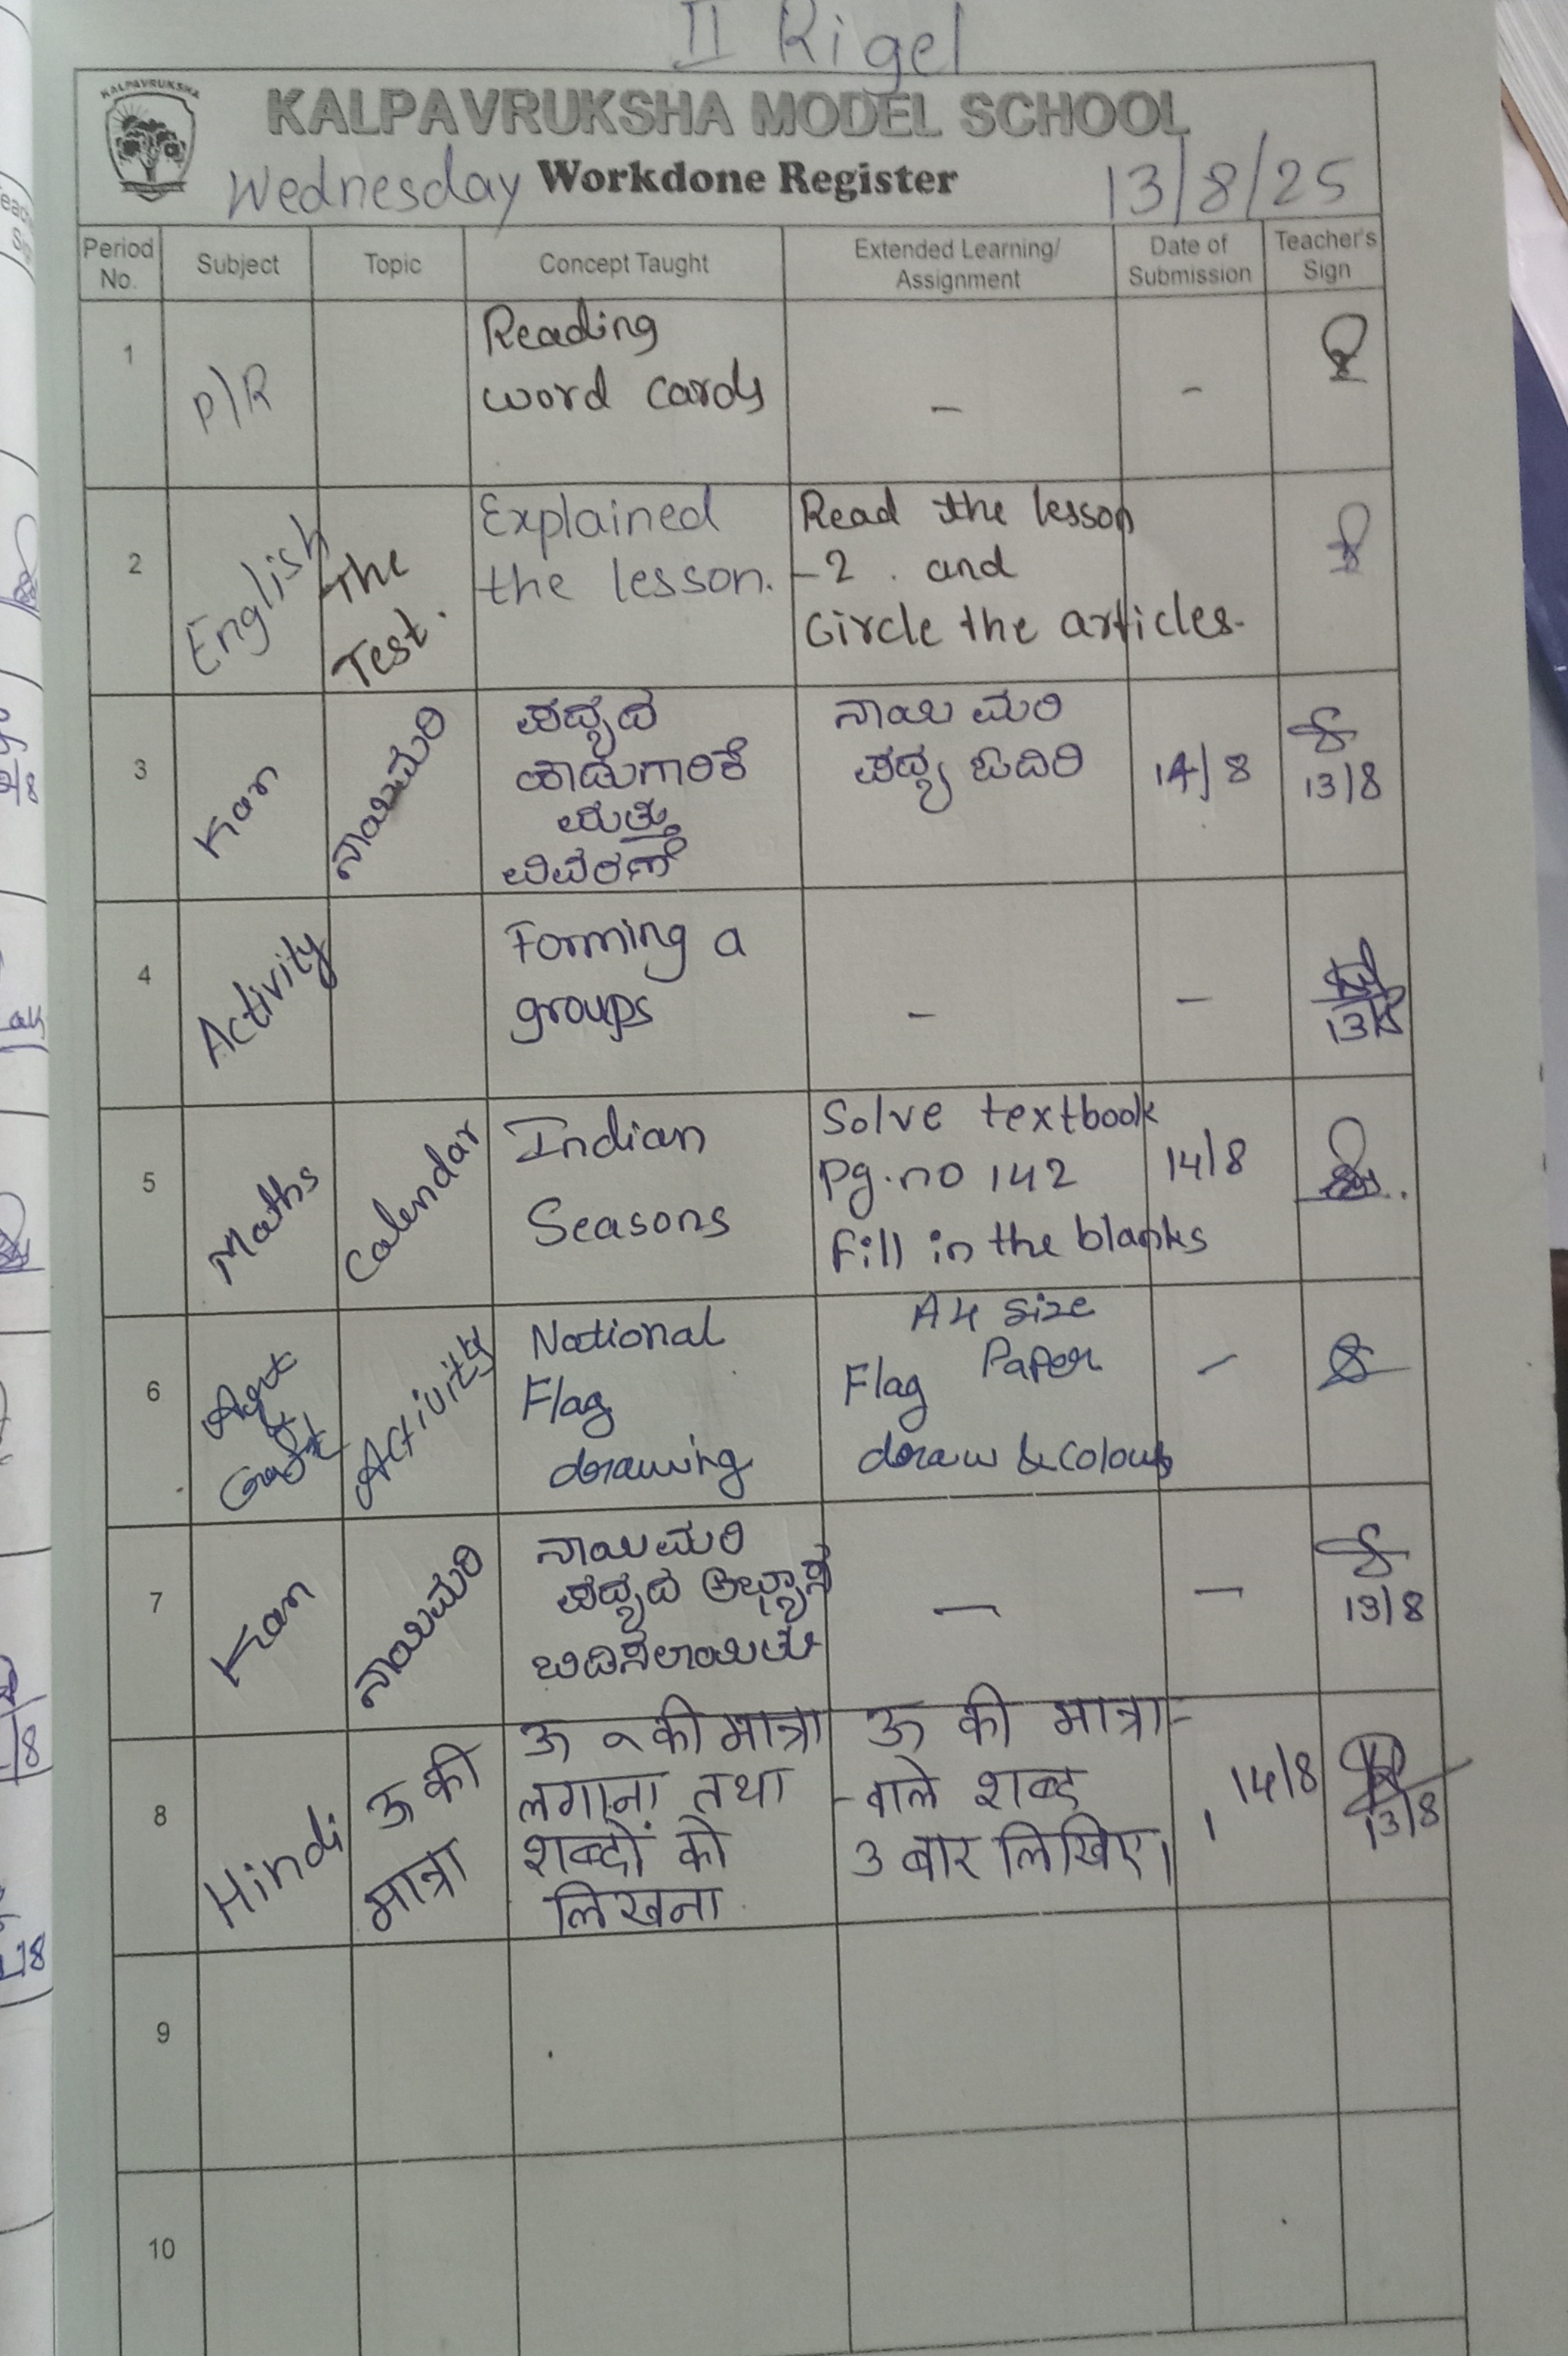 II Rigel
KALPAVRUKSHA
KALPAVRUKSHA MODEL SCHOOL
Wednesday Workdone Register 13/8/25
Period No. Subject Topic Concept Taught Extended Learning/ Assignment Date of Submission Teacher's Sign
1 P/R Reading
word cards - -
2 English The Test. Explained
the lesson. Read the lesson
-2. and
Circle the articles.
3 Kan ನಾಯಿಮರಿ ಪದ್ಯದ
ಹಾಡುಗಾರಿಕೆ
ಮತ್ತು
ವಿವರಣೆ ನಾಯಿ ಮರಿ
ಪದ್ಯ ಓದಿರಿ 14/8 13/8
4 Activity Forming a
groups - - 13/8
5 Maths Calendar Indian
Seasons Solve textbook
Pg.no 142
Fill in the blanks 14/8
6 Art & Craft Activity National
Flag
drawing A4 size
Paper
Flag
draw & colour -
7 Kan ನಾಯಿಮರಿ ನಾಯಿಮರಿ
ಪದ್ಯದ ಅಭ್ಯಾಸ
ಬಿಡಿಸಲಾಯಿತು - - 13/8
8 Hindi ऊ की
मात्रा ऊ ू की मात्रा
लगाना तथा
शब्दों को
लिखना ऊ की मात्रा-
-वाले शब्द
3 बार लिखिए। 14/8 13/8
9
10